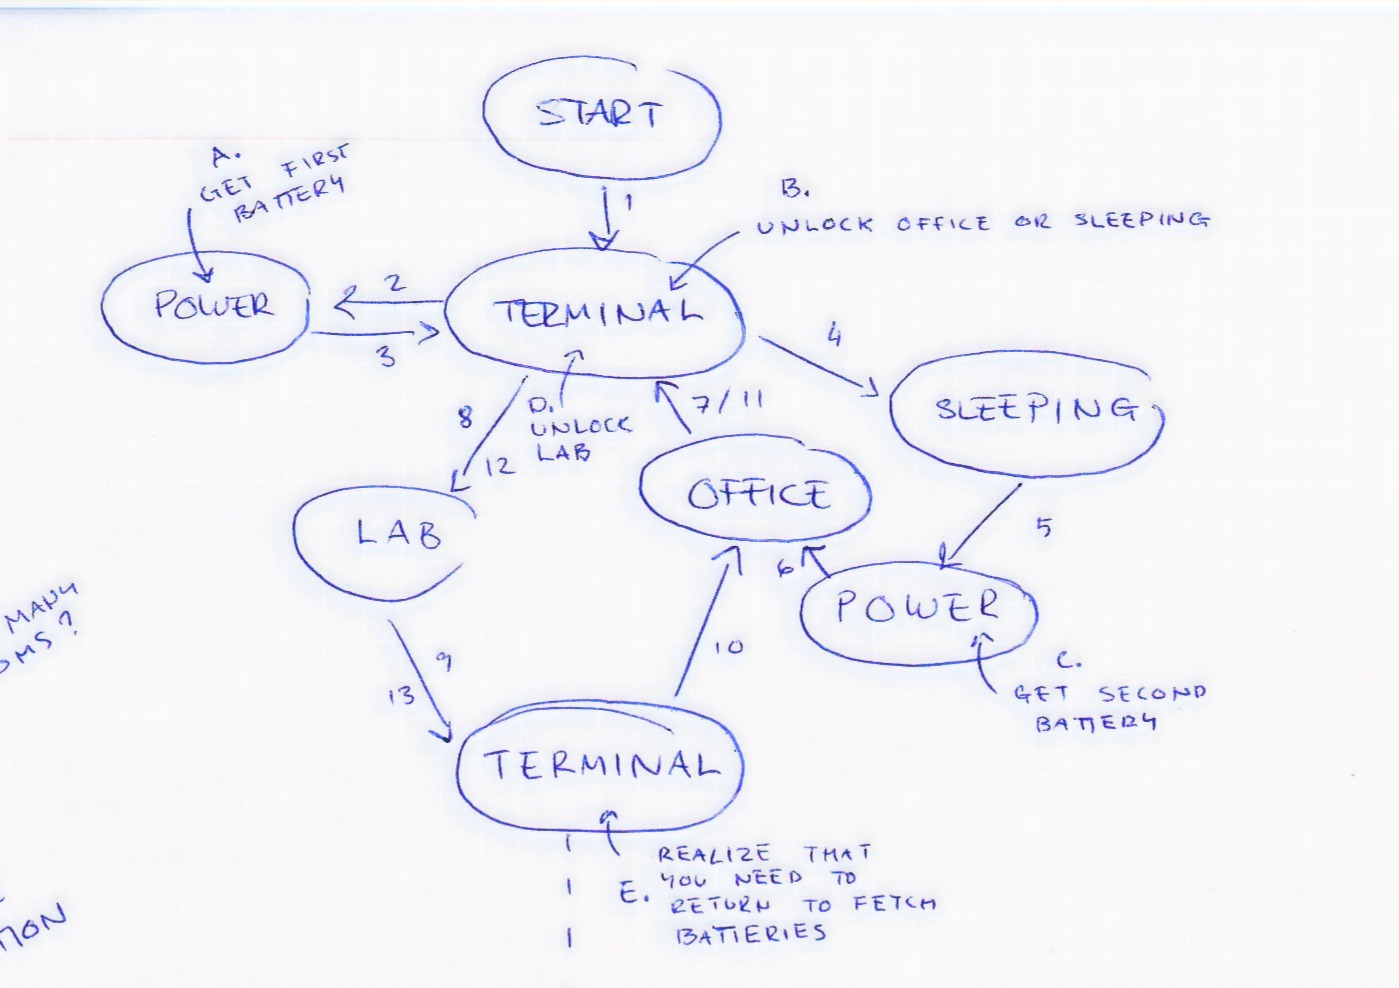 START
A.
GET FIRST
BATTERY
1
B.
UNLOCK OFFICE OR SLEEPING
POWER
2
TERMINAL
3
4
SLEEPING
8
D.
UNLOCK
LAB
7/11
12
LAB
OFFICE
5
6
POWER
MANY
9
13
10
C.
GET SECOND
BATTERY
TERMINAL
E.
REALIZE THAT
YOU NEED TO
RETURN TO FETCH
BATTERIES